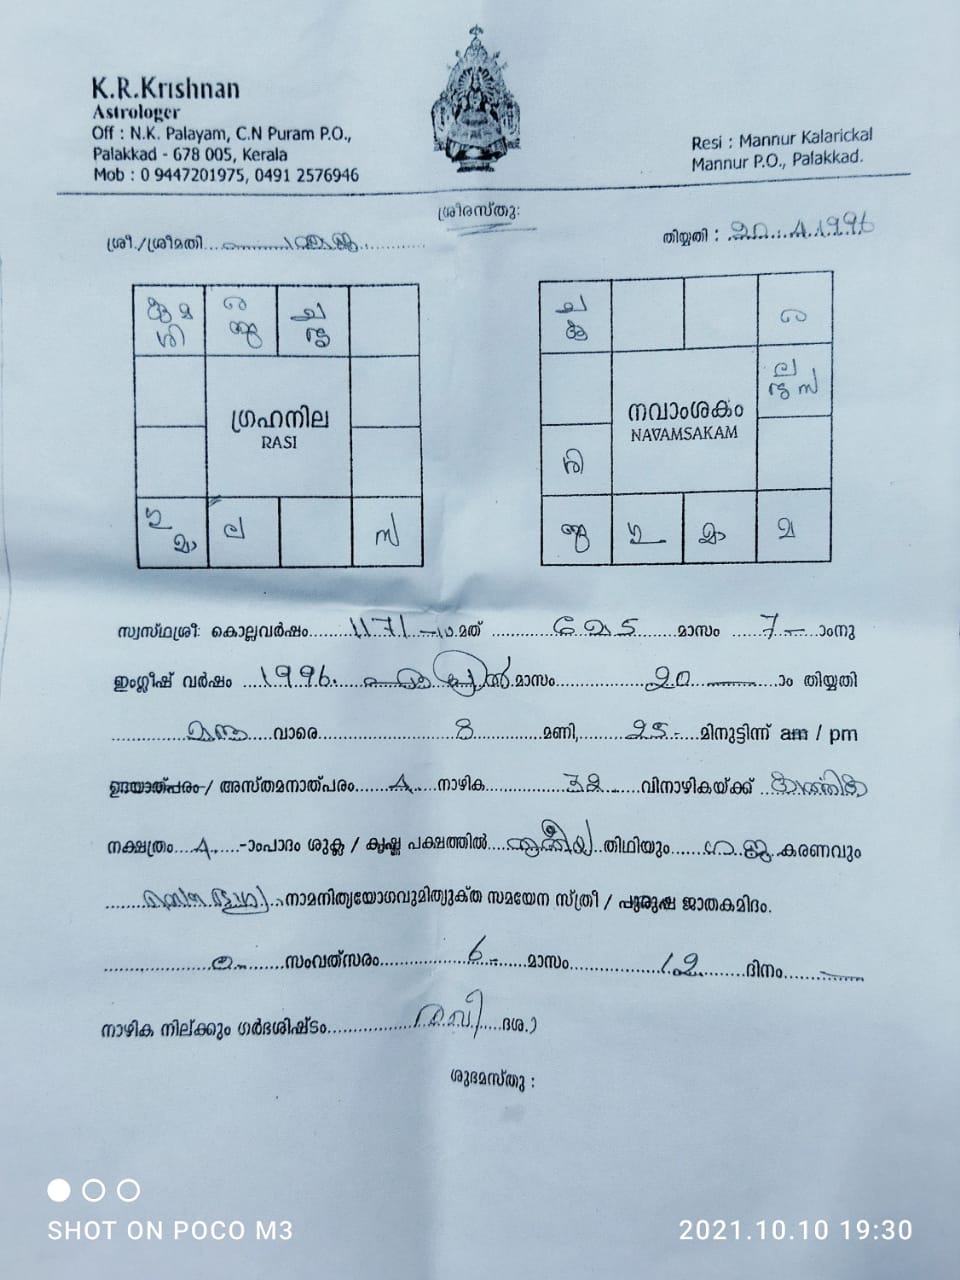 K.R.Krishnan
Astrologer
Off : N.K. Palayam, C.N Puram P.O.,
Palakkad - 678 005, Kerala
Mob : 0 9447201975, 0491 2576946
Resi : Mannur Kalarickal
Mannur P.O., Palakkad.
ശ്രീരസ്തു:
ശ്രീ./ശ്രീമതി
തിയ്യതി : 20.4.1996
കു മ ശി
ര ബു
ച ശു
ഗ്രഹനില
RASI
ഗു മാ
ല
സ
ച കു
ര
ല ശു സ
നവാംശകം
NAVAMSAKAM
ശി
ബു
ഗു
മാ
മ
സ്വസ്ഥശ്രീ: കൊല്ലവർഷം 1171-ാമത് മേടം മാസം 7 ാംനു
ഇംഗ്ലീഷ് വർഷം 1996 ഏപ്രിൽ മാസം 20 ാം തിയ്യതി
വാരെ 8 മണി, 25 മിനുട്ടിന്ന് am / pm
ഉദയാത്പരം / അസ്തമനാത്പരം 4 നാഴിക 32 വിനാഴികയ്ക്ക് കാർത്തിക
നക്ഷത്രം 4 -ാംപാദം ശുക്ല / കൃഷ്ണ പക്ഷത്തിൽ തൃതീയ തിഥിയും കരണവും
സൌഭാഗ്യ നാമനിത്യയോഗവുമിത്യുക്ത സമയേന സ്ത്രീ / പുരുഷ ജാതകമിദം.
സംവത്സരം 6 മാസം 12 ദിനം
നാഴിക നില്ക്കും ഗർഭശിഷ്ടം രവി ദശ.)
ശുഭമസ്തു :
SHOT ON POCO M3
2021.10.10 19:30